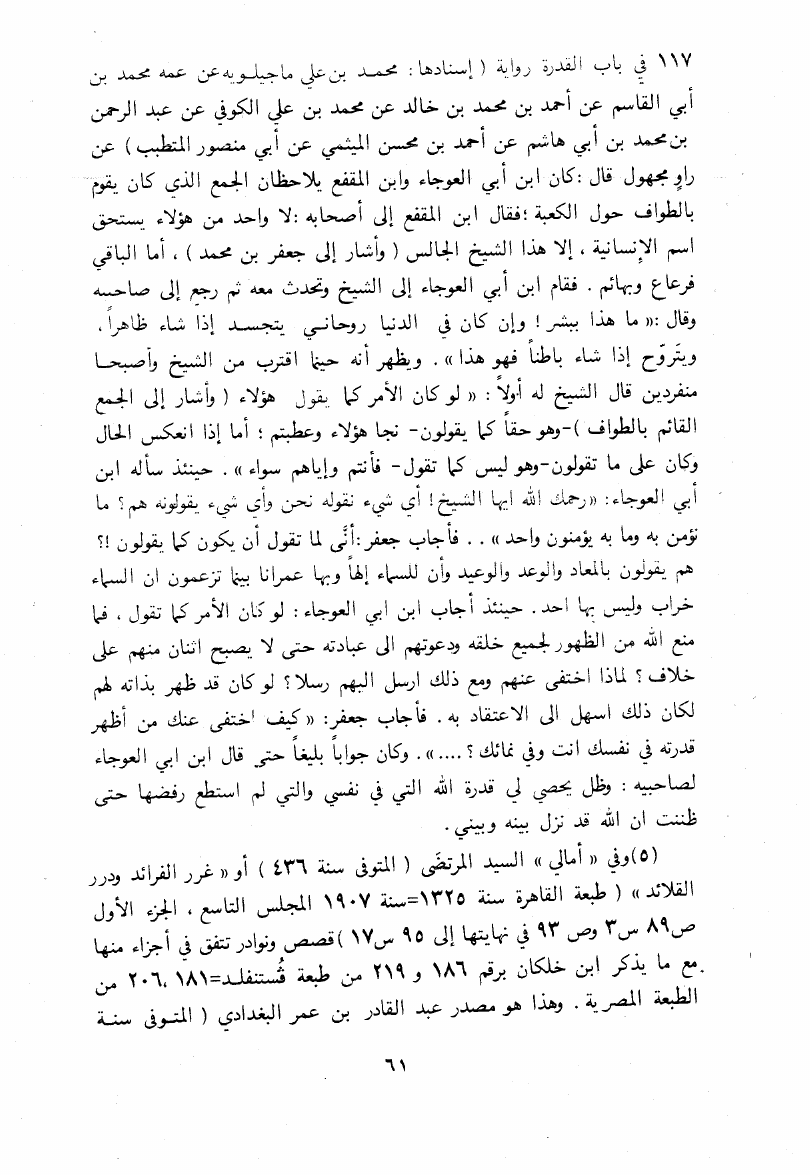 ١١٧ في باب القدرة رواية ( إسنادها : محمد بن علي ماجيلويه عن عمه محمد بن
أبي القاسم عن أحمد بن محمد بن خالد عن محمد بن علي الكوفي عن عبد الرحمن
بن محمد بن أبي هاشم عن أحمد بن محسن الميثمي عن أبي منصور المتطبب ) عن
راوٍ مجهول قال : كان ابن أبي العوجاء وابن المقفع يلاحظان الجمع الذي كان يقوم
بالطواف حول الكعبة ؛ فقال ابن المقفع إلى أصحابه : لا واحد من هؤلاء يستحق
اسم الإنسانية ، إلا هذا الشيخ الجالس ( وأشار إلى جعفر بن محمد ) ، أما الباقي
فرعاع وبهائم . فقام ابن أبي العوجاء إلى الشيخ وتحدث معه ثم رجع إلى صاحبيه
وقال : « ما هذا ببشر ! وإن كان في الدنيا روحاني يتجسد إذا شاء ظاهراً ،
ويتَروّح إذا شاء باطناً فهو هذا » . ويظهر أنه حينما اقترب من الشيخ وأصبحا
منفردين قال الشيخ له أولاً : « لو كان الأمر كما يقول هؤلاء ( وأشار إلى الجمع
القائم بالطواف ) -وهو حقاً كما يقولون- نجا هؤلاء وعطبتم ؛ أما إذا انعكس الحال
وكان على ما تقولون-وهو ليس كما تقول- فأنتم وإياهم سواء » . حينئذ سأله ابن
أبي العوجاء : « رحمك الله ايها الشيخ ! أي شيء نقوله نحن وأي شيء يقولونه هم ؟ ما
نؤمن به وما به يؤمنون واحد » . . فأجاب جعفر : أنَّى لما تقول أن يكون كما يقولون !؟
هم يقولون بالمعاد والوعد والوعيد وأن للسماء إلهاً وبها عمرانا بينما تزعمون ان السماء
خراب وليس بها احد . حينئذ أجاب ابن ابي العوجاء : لو كان الأمر كما تقول ، فما
منع الله من الظهور لجميع خلقه ودعوتهم الى عبادته حتى لا يصبح اثنان منهم على
خلاف ؟ لماذا اختفى عنهم ومع ذلك ارسل اليهم رسلا ؟ لو كان قد ظهر بذاته لهم
لكان ذلك اسهل الى الاعتقاد به . فأجاب جعفر : « كيف اختفى عنك من أظهر
قدرته في نفسك انت وفي نمائك ؟ .... » . وكان جواباً بليغاً حتى قال ابن ابي العوجاء
لصاحبيه : وظل يحصي لي قدرة الله التي في نفسي والتي لم استطع رفضها حتى
ظننت ان الله قد نزل بينه وبيني .
(٥) وفي « أمالي » السيد المرتضَى ( المتوفى سنة ٤٣٦ ) أو « غرر الفرائد ودرر
القلائد » ( طبعة القاهرة سنة ١٣٢٥=سنة ١٩٠٧ المجلس التاسع ، الجزء الأول
ص٨٩ س٣ وص ٩٣ في نهايتها إلى ٩٥ س١٧ ) قصص ونوادر تتفق في أجزاء منها
مع ما يذكر ابن خلكان برقم ١٨٦ و ٢١٩ من طبعة ڤستنفلد=١٨١ ، ٢٠٦ من
الطبعة المصرية . وهذا هو مصدر عبد القادر بن عمر البغدادي ( المتوفى سنة
٦١